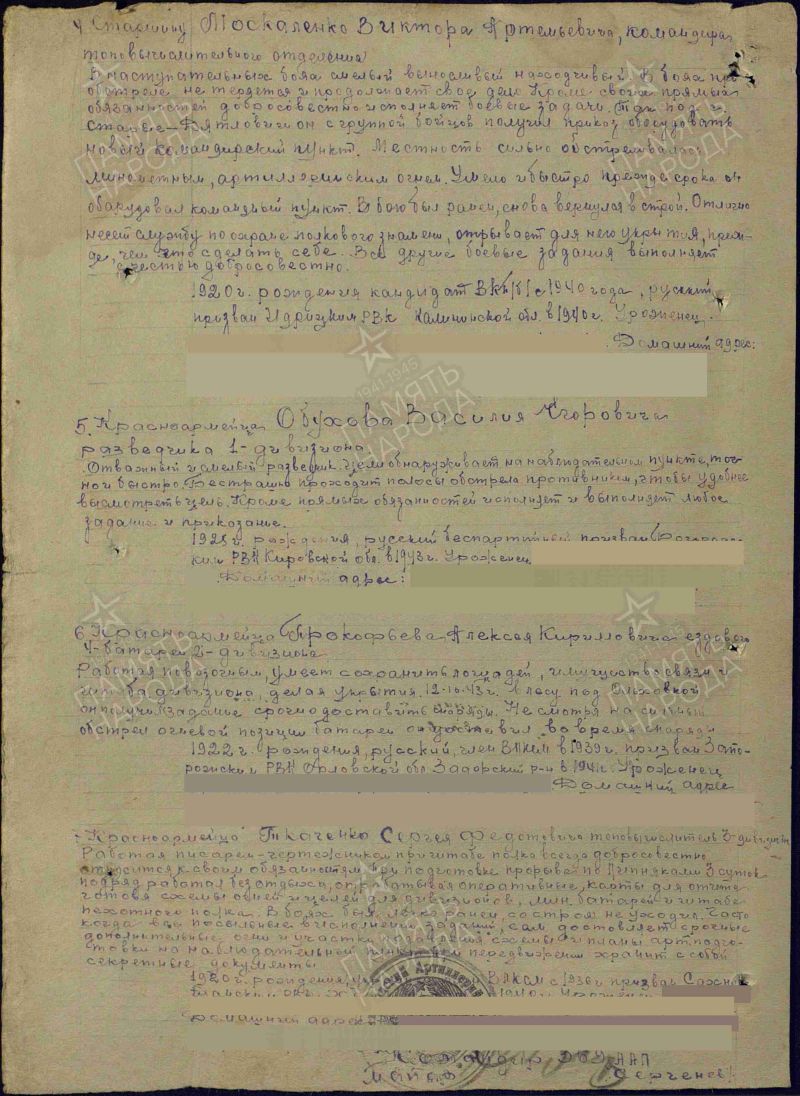 4 Старшину Москаленко Виктора Артемьевича, командира
топовычислительного отделения
В наступательных боях смелый выносливый находчивый. В боях при
обстреле не теряется и продолжает свое дело. Кроме своих прямых
обязанностей добросовестно исполняет боевые задачи. Так под
Старые-Дятловичи он с группой бойцов получил приказ оборудовать
новый командирский пункт. Местность сильно обстреливалась
минометным, артиллерийским огнем. Умело и быстро прежде срока он
обарудовал командный пункт. В бою был ранен, снова вернулся в строй. Отлично
несет службу по охране полкового знамени, открывает для него укрытия, преж-
де, чем что сделать себе. Все другие боевые задания выполняет
с честью добросовестно.
1920 г. рождения кандидат ВКП/б/ с 1940 года, русский
призван Идрицким РВК Калининской обл. в 1940 г. Уроженец
Домашний адрес:
5. Красноармейца Обухова Василия Егоровича
разведчика 1-дивизиона.
Отважный и смелый разведчик. Цели обнаруживает на наблюдательном пункте, точ-
но и быстро. Бестрашно проходит полосы обстрела противником, чтобы удобнее
высмотреть цель. Кроме прямых обязанностей исполняет и выполняет любое
задание и приказание.
1925 г. рождения, русский беспартийный призван
ким РВК Кировской обл. в 1943 г. Уроженец
Домашний адрес:
6 Красноармейца Прокофьева Алексея Кирилловича ездового
4-батареи 2-дивизиона
Работая повозочным, умеет сохранить лошадей, имущество связи и
штаба дивизиона, делая укрытия. 12-10-43 г. в лесу под Ольховкой
он получил задание срочно доставить снаряды. Не смотря на сильный
обстрел огневой позиции батареи он доставил во время снаряды
1922 г. рождения, русский, член ВЛКСМ с 1939 г. призван
РВК Орловской обл. р-н в 1941 г. Уроженец
Домашний адрес
Красноармейца Ткаченко Сергея Федотовича топовычислитель 3-дивизиона
Работая писарем-чертежником при штабе полка всегда добросовестно
относится к своим обязанностям. При подготовке прорыва по 3 суток
подряд работал без отдыха, отрабатывая оперативные карты для отчета
готовя схемы огней и целей для дивизионов, мин. батарей и штаба
пехотного полка. В боях был легко ранен, со строя не уходил. Часто
когда все посыльные в исполнении заданий, сам доставляет срочные
дополнительные огни и участки подавления, схемы и планы артподго-
товки на наблюдательный пункт. При передвижении хранит с собой
секретные документы
1920 г. рождения, ВЛКСМ с 1936 г. призван
1940 г. Уроженец
Домашний адрес:
Командир АП
майор
ПАМЯТЬ НАРОДА
1941-1945